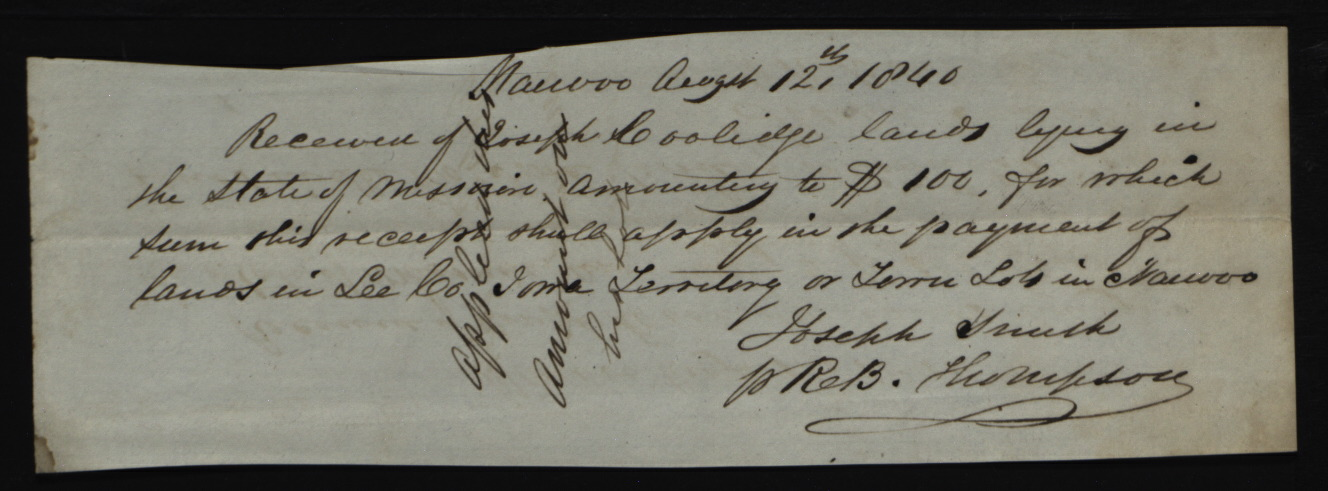 Nauvoo Augst 12th, 1840
Received of Joseph Coolidge lands lyeing in
the State of Missoire, Amounting to $ 100, for which
sum this receipt shall apply in the payment of
lands in Lee Co Iowa Territory or Town Lots in Nauvoo
Joseph Smith
p R. B. Thompson
applied the
Amount on
his